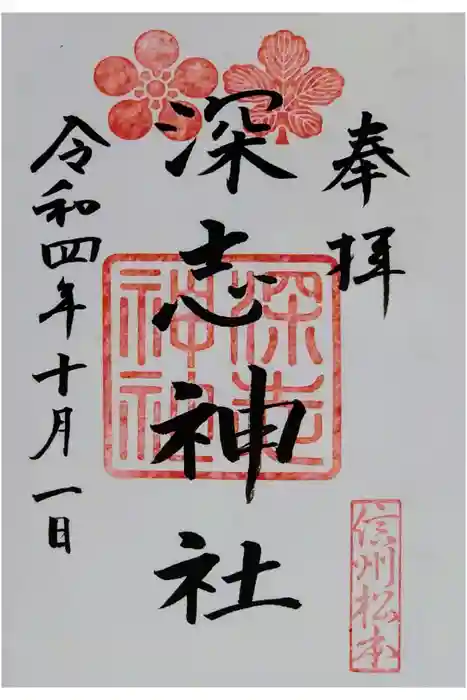 奉拝
深志神社
深志
神社
令和四年十月一日
信州松本